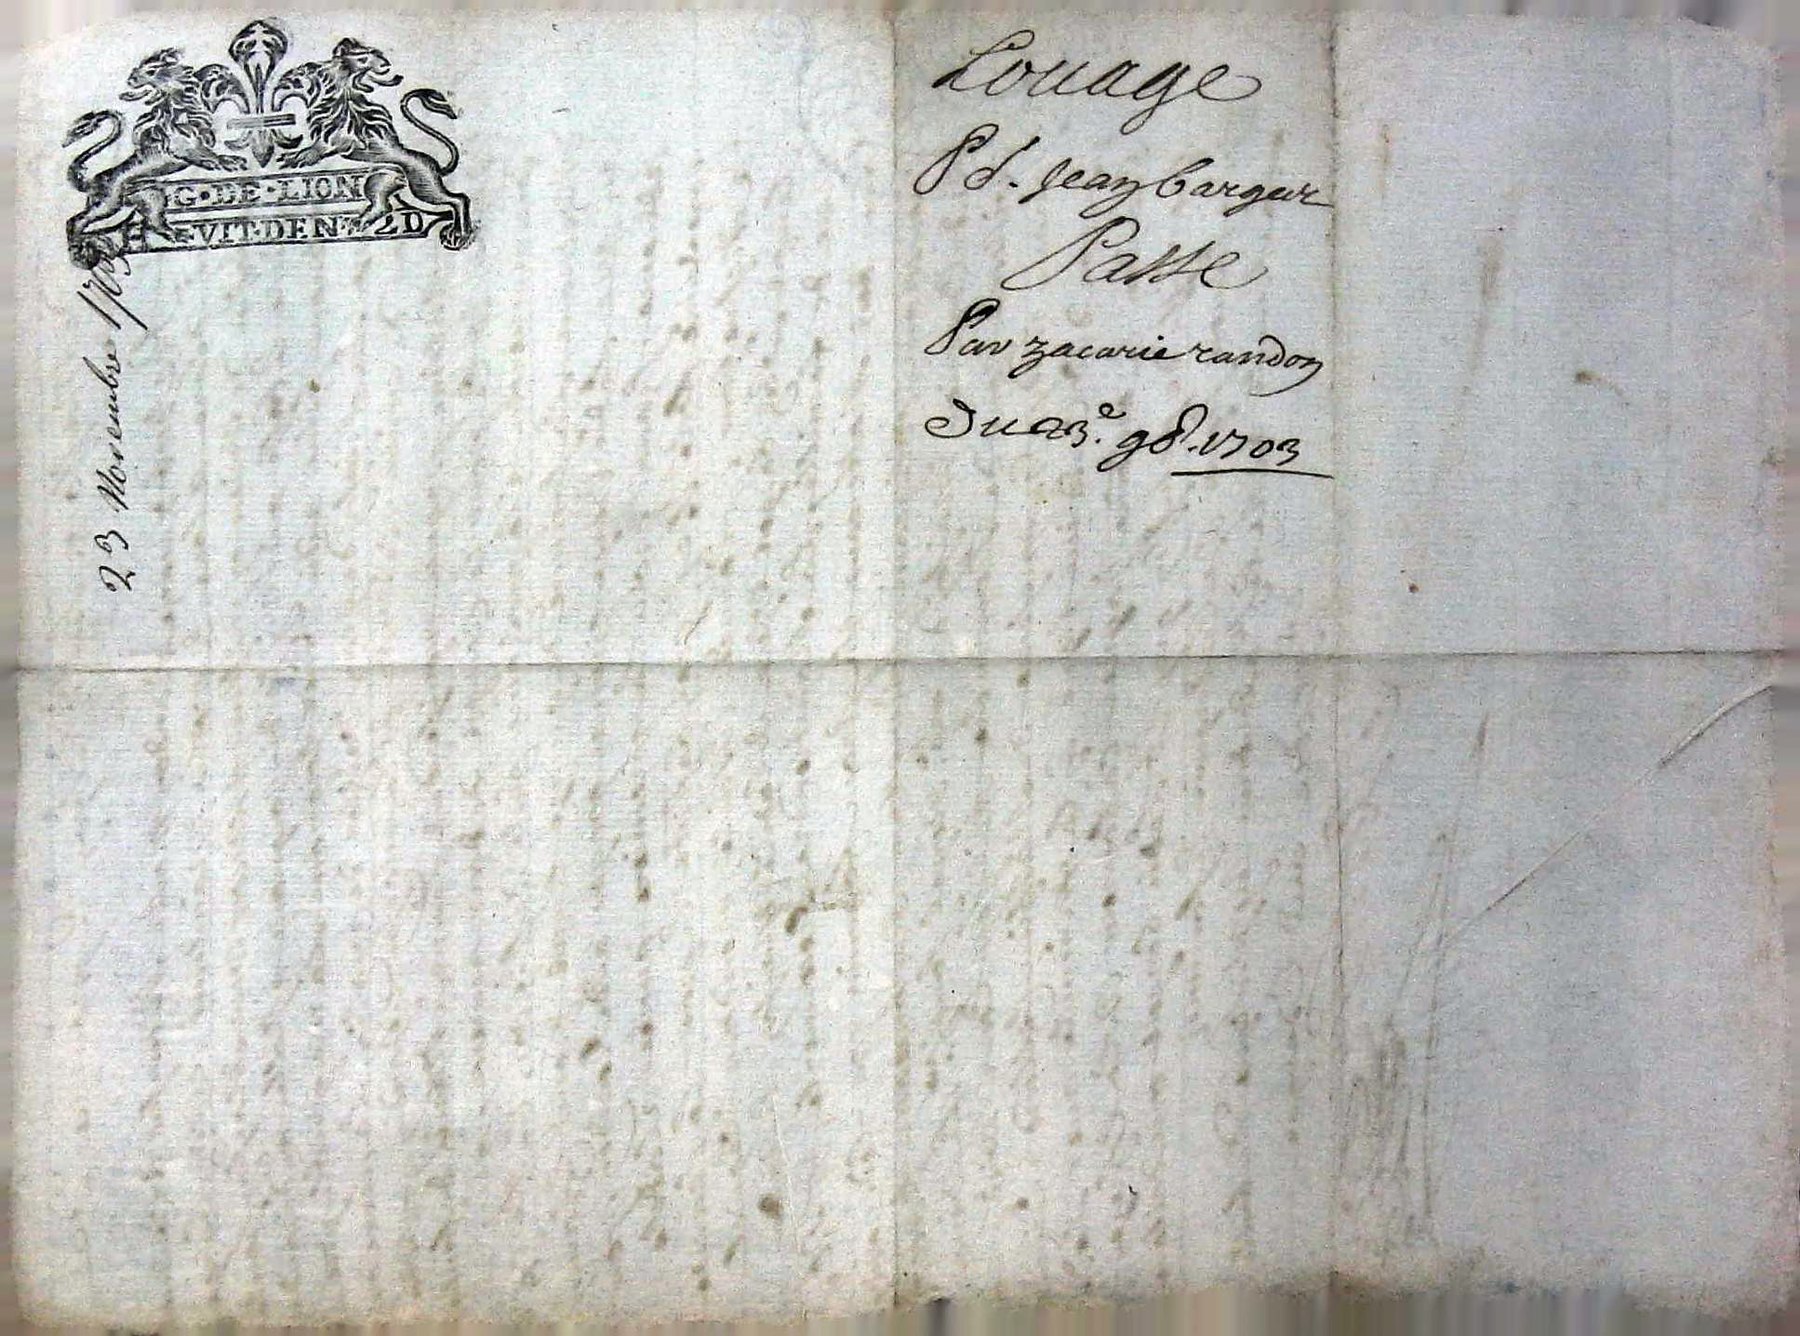 G·DE·LION
HUIT·DEN· 2D
23 Novembre 1703
Louage
Pd. Jean bargur
Passe
Par zacarie randon
Du 23.e 9b. 1703